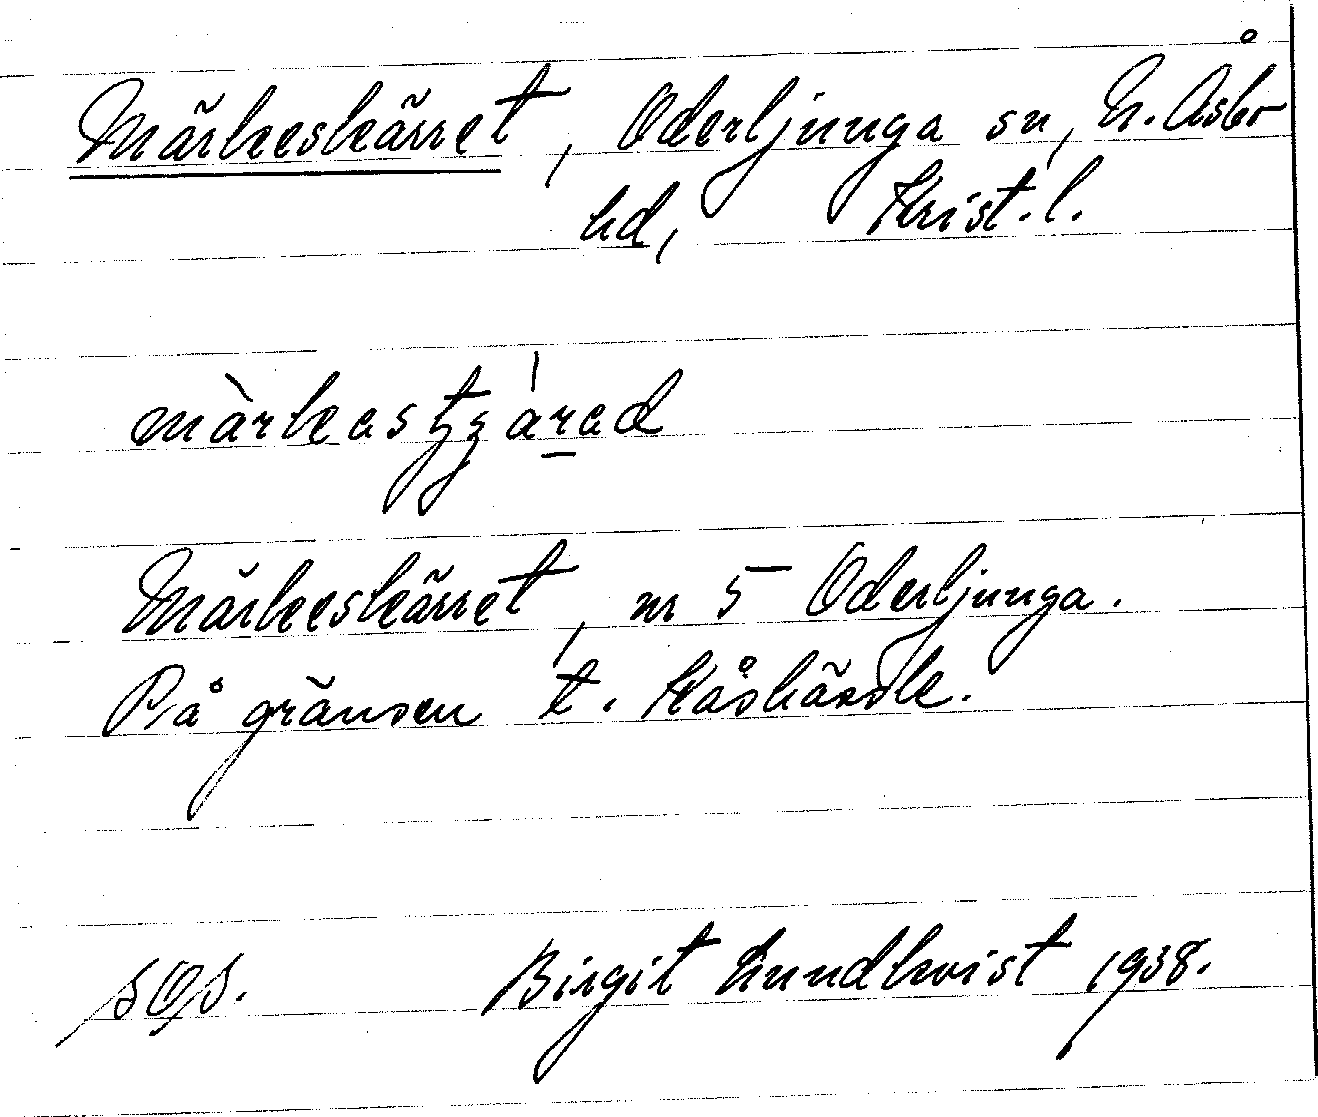 Märkeskärret, Oderljunga sn, N. Åsbo
hd, Krist. l.
Märkeskärret, nr 5 Oderljunga.
På gränsen t. Kåshässle.
SOS. Birgit Lundkvist 1938.